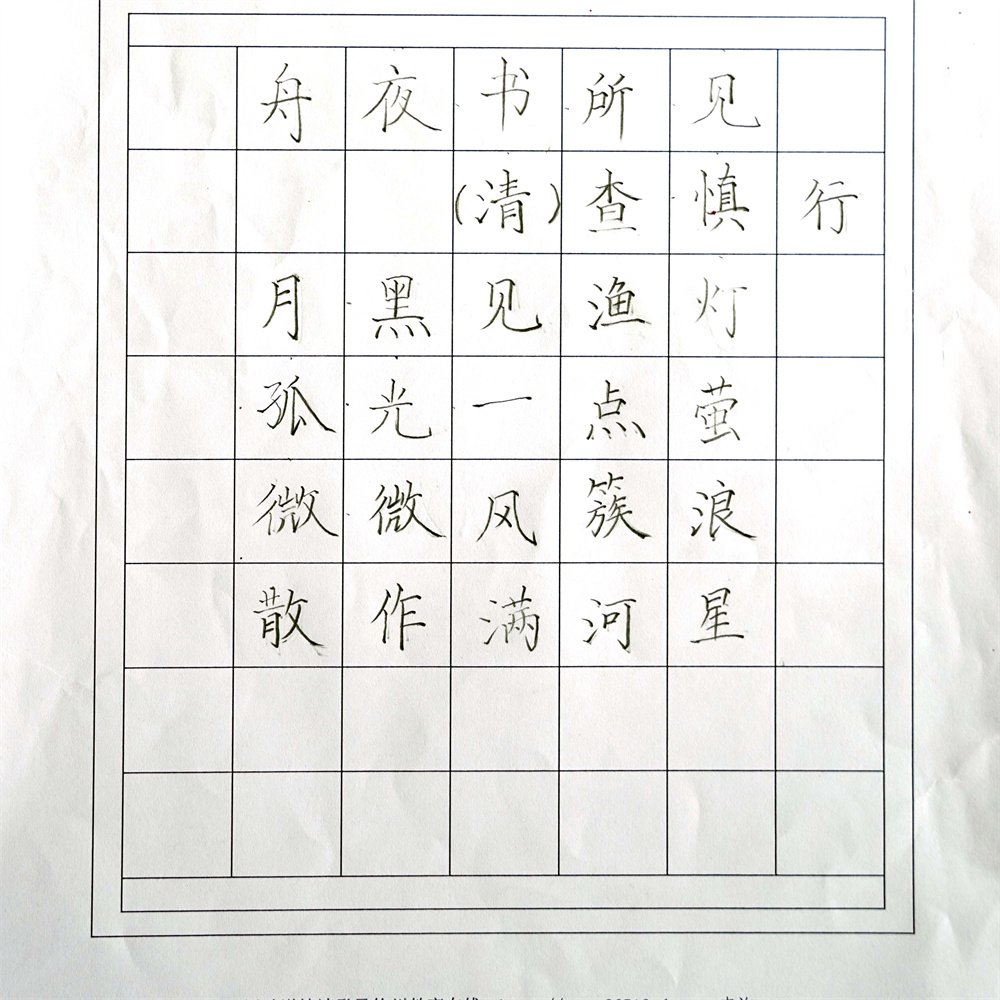 舟夜书所见
(清)查慎行
月黑见渔灯
孤光一点萤
微微风簇浪
散作满河星